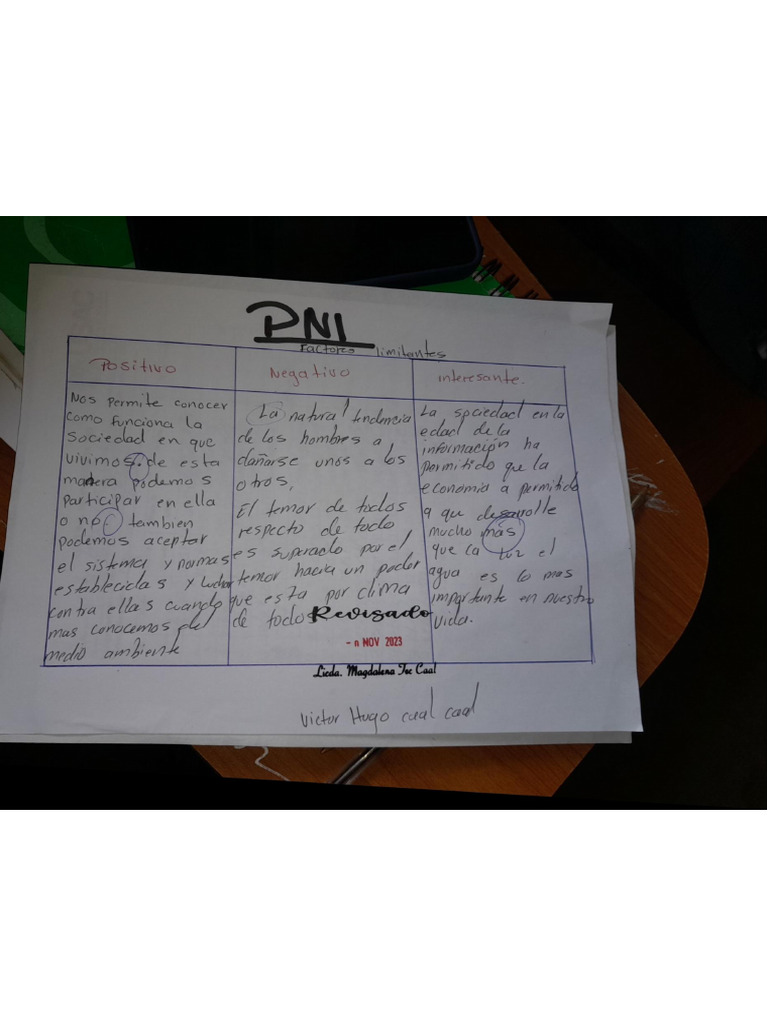 PNI
Factores limitantes
Positivo
Negativo
interesante.
Nos permite conocer
como funciona la
sociedad en que
vivimos. de esta
manera podemos
participar en ella
o no tambien
podemos aceptar
el sistema y normas
establecidas y luchar
contra ellas cuando
mas conocemos del
medio ambiente
La natural tendencia
de los hombres a
dañarse unos a los
otros.
El temor de todos
respecto de todo
es superado por el
temor hacia un poder
que esta por clima
de todo
La sociedad en la
edad de la
información ha
permitido que la
economia a permitido
a que desarolle
mucho más
que la luz el
agua es lo mas
importante en nuestro
vida.
Revisado
NOV 2023
Licda. Magdalena Toc Caal
Victor Hugo caal caal